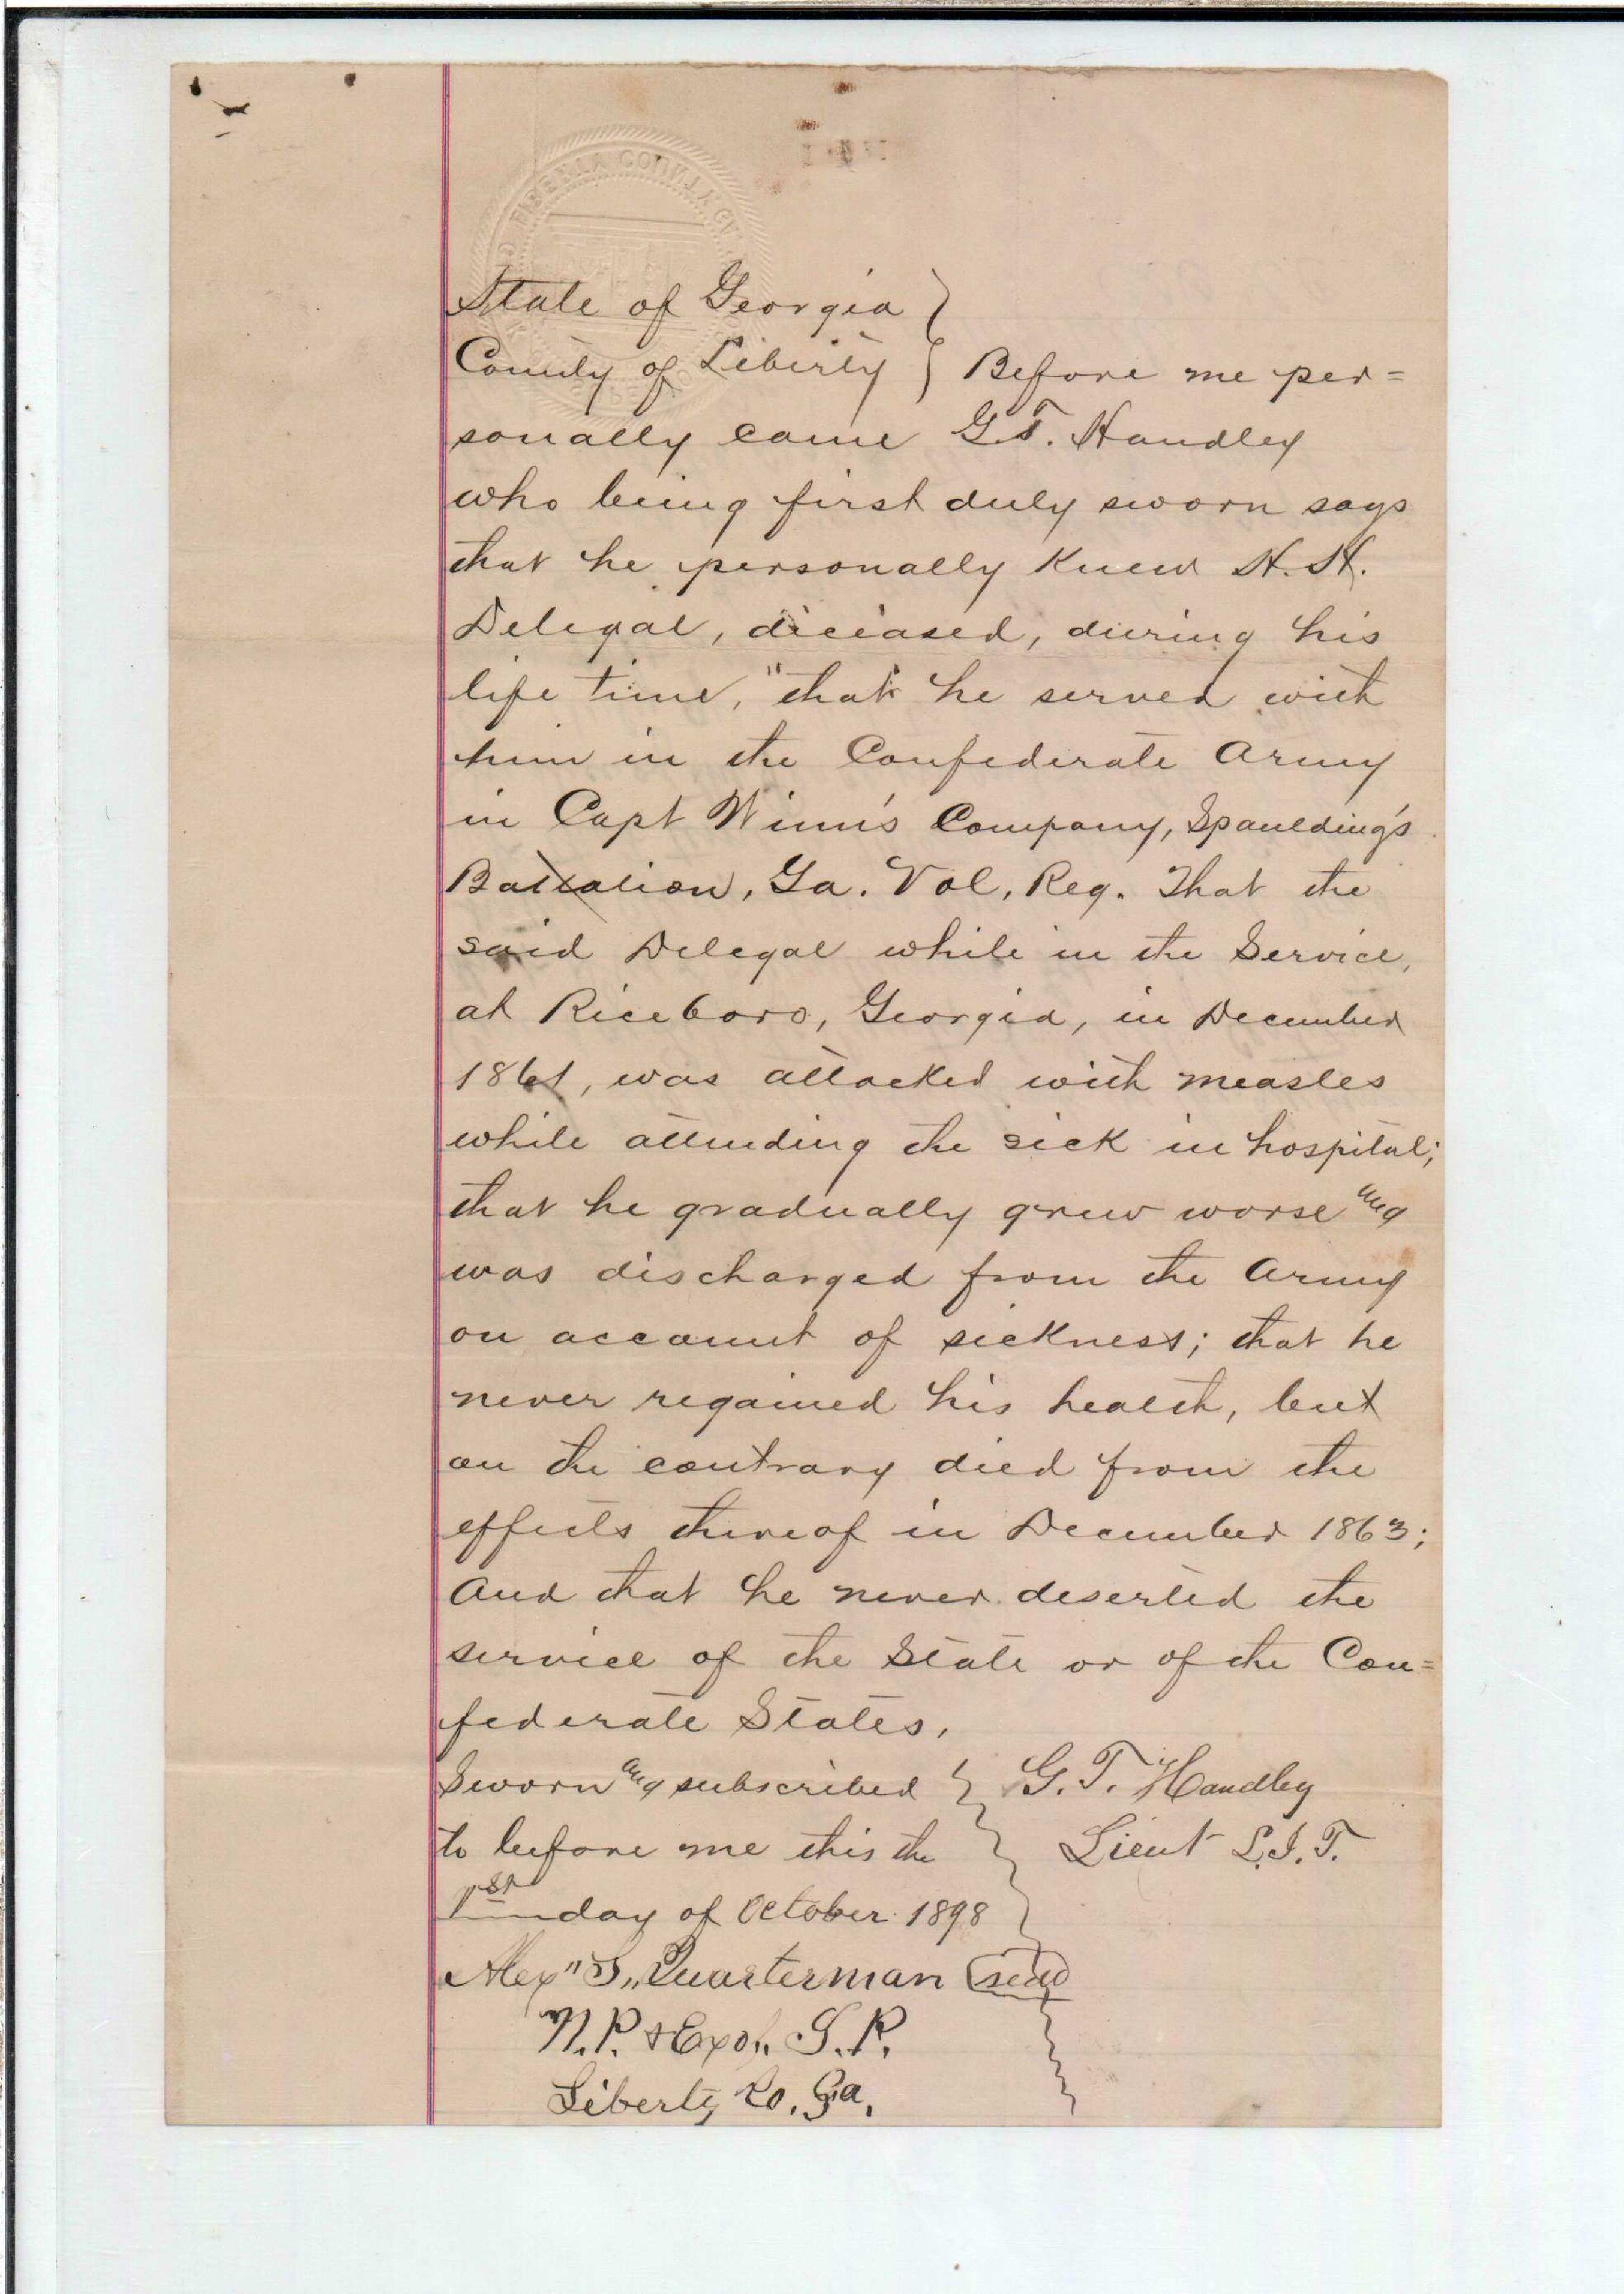 State of Georgia }
County of Liberty } Before me per=
sonally came G.T. Handley
who being first duly sworn says
that he personally knew H. H.
Delegal, deceased, during his
life time, "that he served with
him in the Confederate Army
in Capt Winn's Company, Spaulding's
Battalion, Ga. Vol, Reg. That the
said Delegal while in the Service,
at Riceboro, Georgia, in December
1861, was attacked with measles
while attending the sick in hospital;
that he gradually grew worse and
was discharged from the Army
on account of sickness; that he
never regained his health, but
on the contrary died from the
effects thereof in December 1863;
and that he never deserted the
service of the State or of the Con=
federate States,
Sworn and subscribed } G. T. Handley
to before me this the } Lieut L.I.T.
1st day of October 1898
Alex" S,, Quarterman seal
N.P. & Exof. J. P.
Liberty Co. Ga.